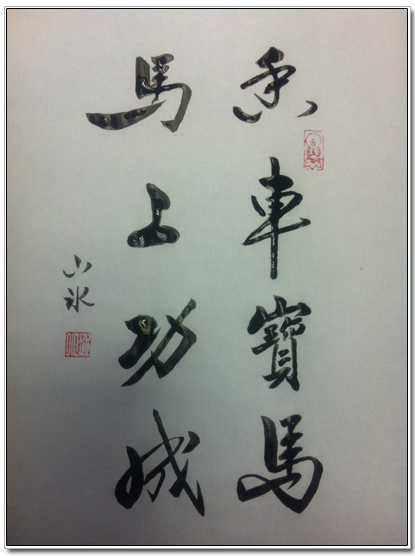 香車寶馬
馬上功成
小冰